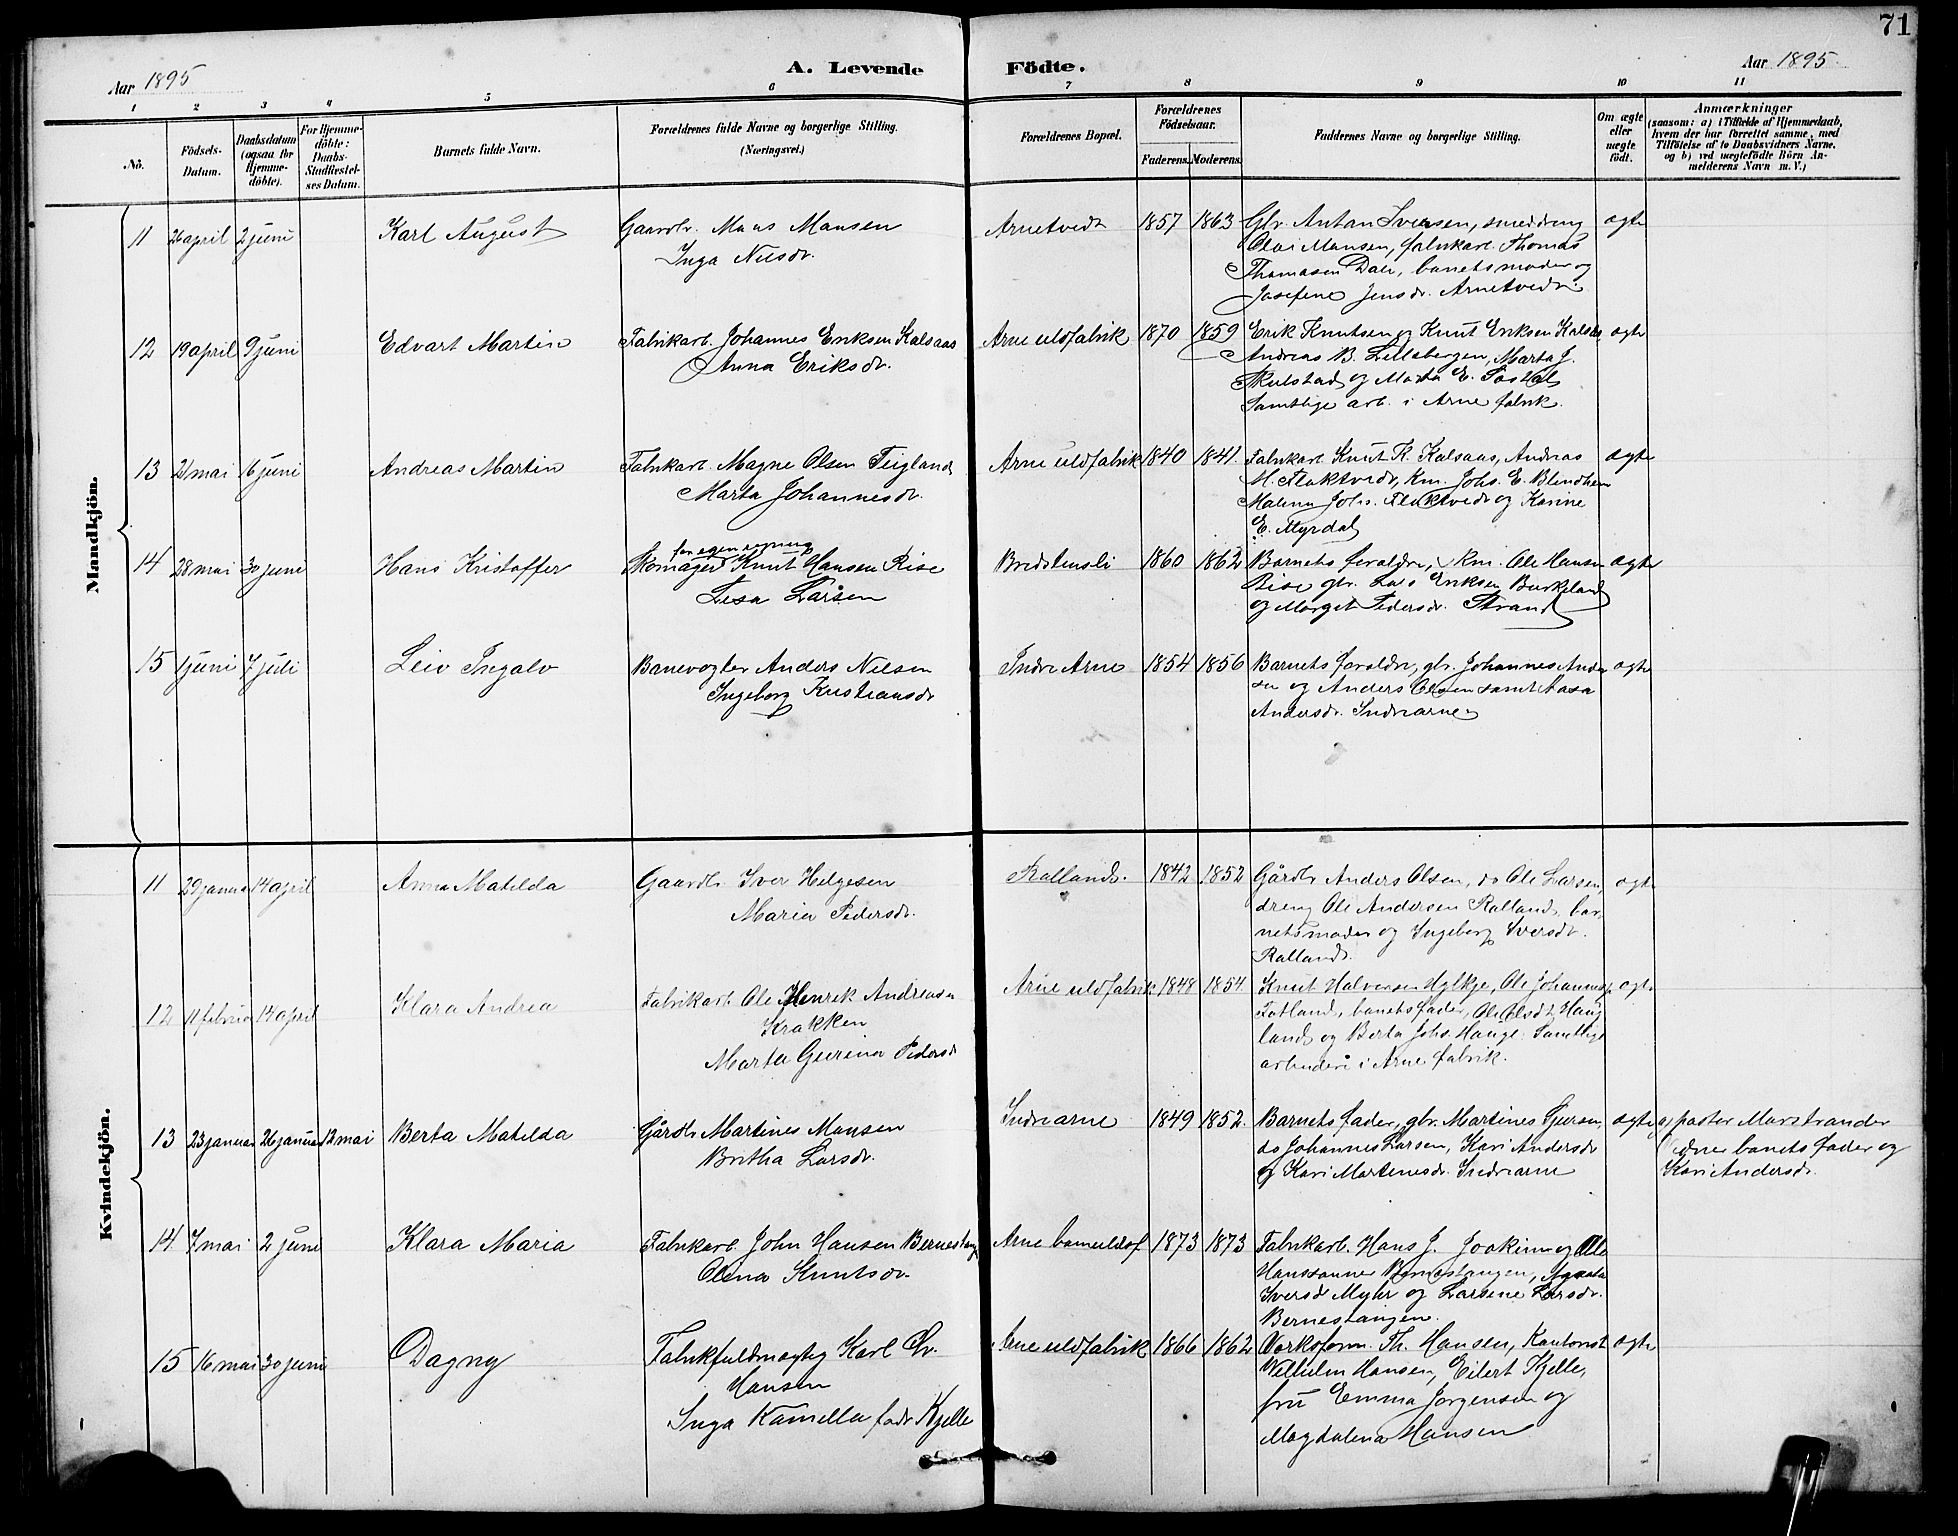 71
Aar 1895
A. Levende Födte.
Aar 1895
1 2 3 4 5 6 7 8 9 10 11
No.
Födsels-
Datum.
Daabsdatum
(ogsaa for
Hjemme-
döbte).
For Hjemme-
döbte:
Daabs-
Stadfæstel-
ses Datum.
Barnets fulde Navn.
Forældrenes fulde Navne og borgerlige Stilling.
(Næringsvei.)
Forældrenes Bopæl.
Forældrenes
Födselsaar.
Faderens. Moderens.
Faddernes Navne og borgerlige Stilling.
Om ægte
eller
uægte
födt.
Anmærkninger
(saasom: a) i Tilfælde af Hjemmedaab,
hvem der har forrettet samme, med
Tilföielse af to Daabsvidners Navne,
og b) ved uægtefödte Börn An-
melderens Navn m. V.)
Mandkjön.
11 26 april 2 juni Karl August Gaardbr. Mons Monsen Arnetvedt 1857 1863 Gbr. Anton Iversen, smeddreng ægte
Inga Nilsdr. Olai Monsen, fabrikarb. Thomas
Thomasen Dale, barnets moder og
Josefine Jensdr. Arnetvedt
12 19 april 9 juni Edvart Martin Fabrikarb. Johannes Eriksen Kalsaas Arne uldfabrik 1870 1859 Erik Knutsen og Knut Eriksen Kalsaas ægte
Anna Eriksdr. Andreas B. Lillebergen, Marta J.
Skulstad og Marta E.
Samtlige arb. i Arne fabrik.
13 21 mai 16 juni Andreas Martin Fabrikarb. Magne Olsen Teigland Arne uldfabrik 1840 1841 Fabrikarb. Knut K. Kalsaas, Andreas ægte
Marta Johannesdr. M. Flaktvedt, Km. Johs. E. Blindheim
Malena Johs. Flaktvedt og Karine
E. Myrdal
14 28 mai 30 juni Hans Kristoffer for egen regning
Skomager Knut Hansen Rise Bredstensli 1860 1862 Barnets forældre, Km. Ole Hansen ægte
Lisa Larsen Rise gbr. Lars Eriksen Burkeland
og Marget Pedersdr. Strand
15 1 juni 7 juli Leiv Ingolv Banevogter Anders Nilsen Indre Arne 1854 1856 Barnets forældre, gbr. Johannes Ander ægte
Ingeborg Kristiansdr. sen og Anders Olsen samt Aasa
Andersdr. Indrearne
Kvindekjön.
11 29 januar 14 april Anna Matilda Gaardbr. Iver Helgesen Ralland. 1842 1852 Gårdbr Anders Olsen, do Ole Larsen, ægte
Maria Pedersdr. dreng Ole Andersen Ralland, bar-
nets moder og Ingeborg Iversdr.
Ralland.
12 11 februar 14 april Klara Andrea Fabrikarb. Ole Henrik Andreasen Arne uldfabrik 1848 1854 Knut Halvorsen Hylkje, Ole Johannes ægte
Krakken Fotland, barnets fader, Haug
Marta Gurina Pedersdr land og Berta Johs. Hauge. Samtlige
arbeidere i Arne fabrik.
13 23 januar 26 januar 12 mai Berta Matilda Gårdbr Martines Monsen Indrearne 1849 1852. Barnets fader, gbr. Martines ægte a) pastor Marstrander
Britha Larsdr. do Johannes Larsen, Kari Andersdr barnets fader og
og Kari Martinesdr. Indrearne Kari Andersdr.
14 7 mai 2 juni Klara Maria Fabrikarb. John Hansen Bernestang Arne 1873 1873 Fabrikarb. Hans J. Joakim og Ole
Olena Knutsdr. Hanssønner Bernestangen, Agata
Iversd Myhr og Larsine Larsdr.
Bernestangen.
15 16 mai 30 juni Dagny Fabrikfuldmægtig Karl Chr. Arne uldfabrik 1866 1862 Værksform. Th. Hansen, Kantorist ægte
Hansen Vilhelm Hansen, Eilert Kjelle,
Inga Kamilla født Kjelle fru Emma Jørgensen og
Magdalena Hansen